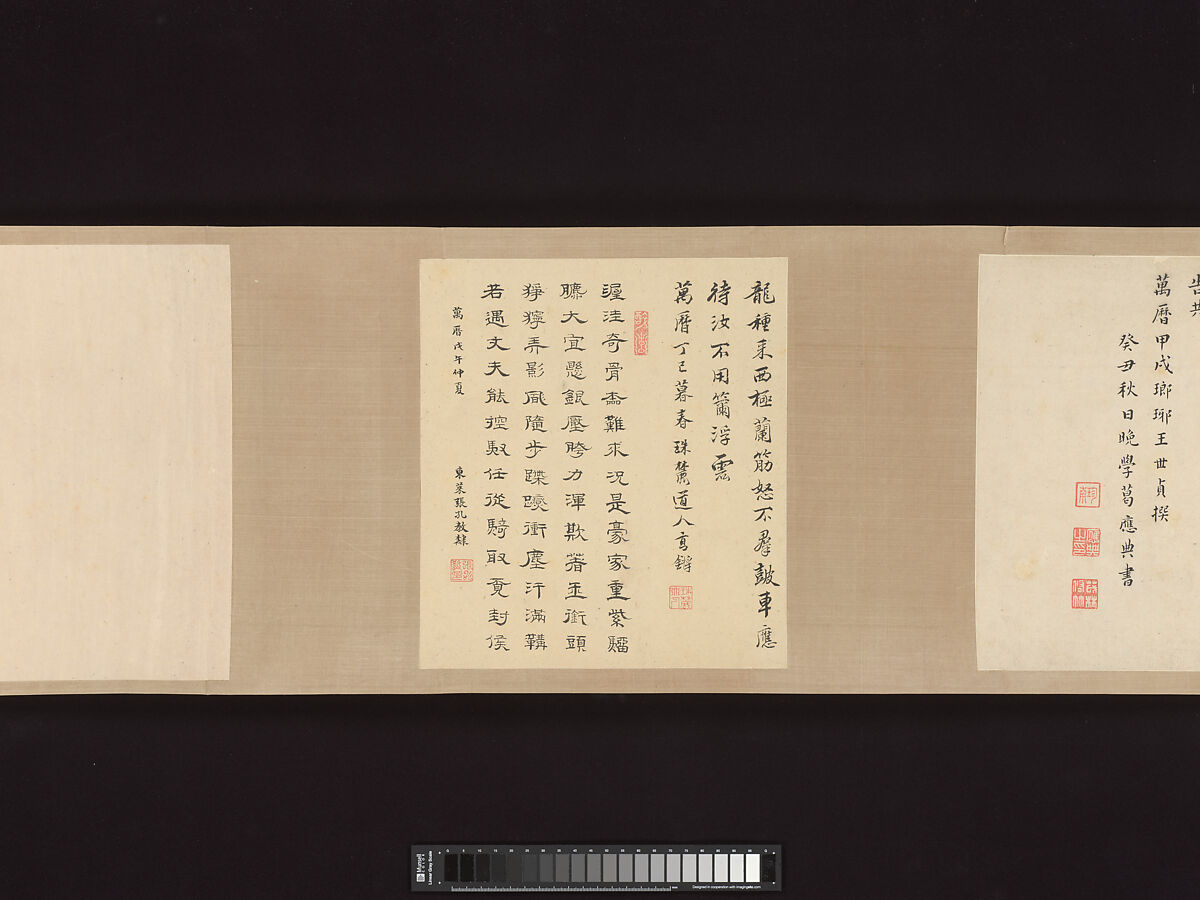 萬曆甲戌瑯琊王世貞撰
癸丑秋日晚學葛應典書
龍種來西極蘭筋怒不羣皷車應
待汝不用籋浮雲
萬曆丁巳暮春珠麓道人高鏘
渥洼奇骨盃難求況是豪家重紫騮
臕大宜懸銀壓胯力渾欺著玉銜頭
猙獰弄影風隨步蹀躞衝塵汗滿鞲
若遇丈夫能控馭任從騎取覓封侯
萬曆戊午仲夏
東萊張孔教隸
Munsell
Linear Gray Scale
Designed in cooperation with imagingetc.com